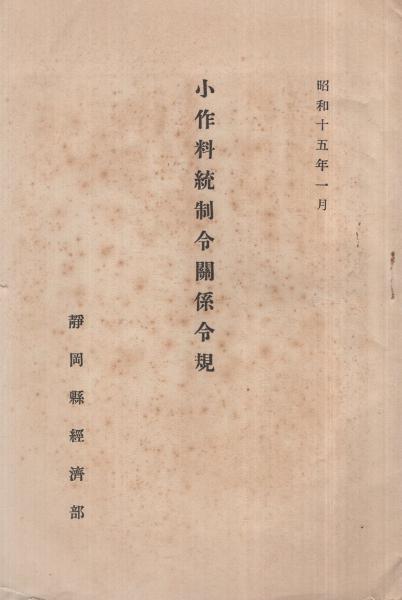 昭和十五年一月
小作料統制令關係令規
靜岡縣經濟部